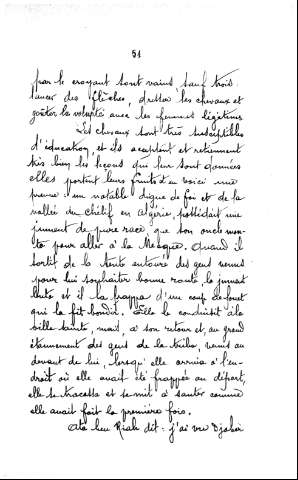 51
par le croyant sont vains, sauf trois:
lancer des flèches, dresser les chevaux et
goûter la volupté avec les femmes légitimes
Les chevaux sont très susceptibles
d'éducation, et ils acceptent et retiennent
très bien les leçons qui leur sont données
elles portent leurs fruits en voici une
preuve: un notable digne de foi et de la
vallée du Chélif en Algérie, possédait une
jument de pure race que son oncle mon-
ta pour aller à la Mecque. Quand il
sortit de la tente entouré des gens venus
pour lui souhaiter bonne route la jument
buta et il la frappa d'un coup de fouet
qui la fit bondir. Elle le conduisit à la
ville sainte, mais, à son retour et, au grand
étonnement des gens de la tribu, venus au
devant de lui, lorsqu'elle arriva à l'en-
droit où elle avait été frappée au départ,
elle se tracassa et se mit à sauter comme
elle avait fait la première fois.
Ata ben Riah dit: j'ai vu Djaber